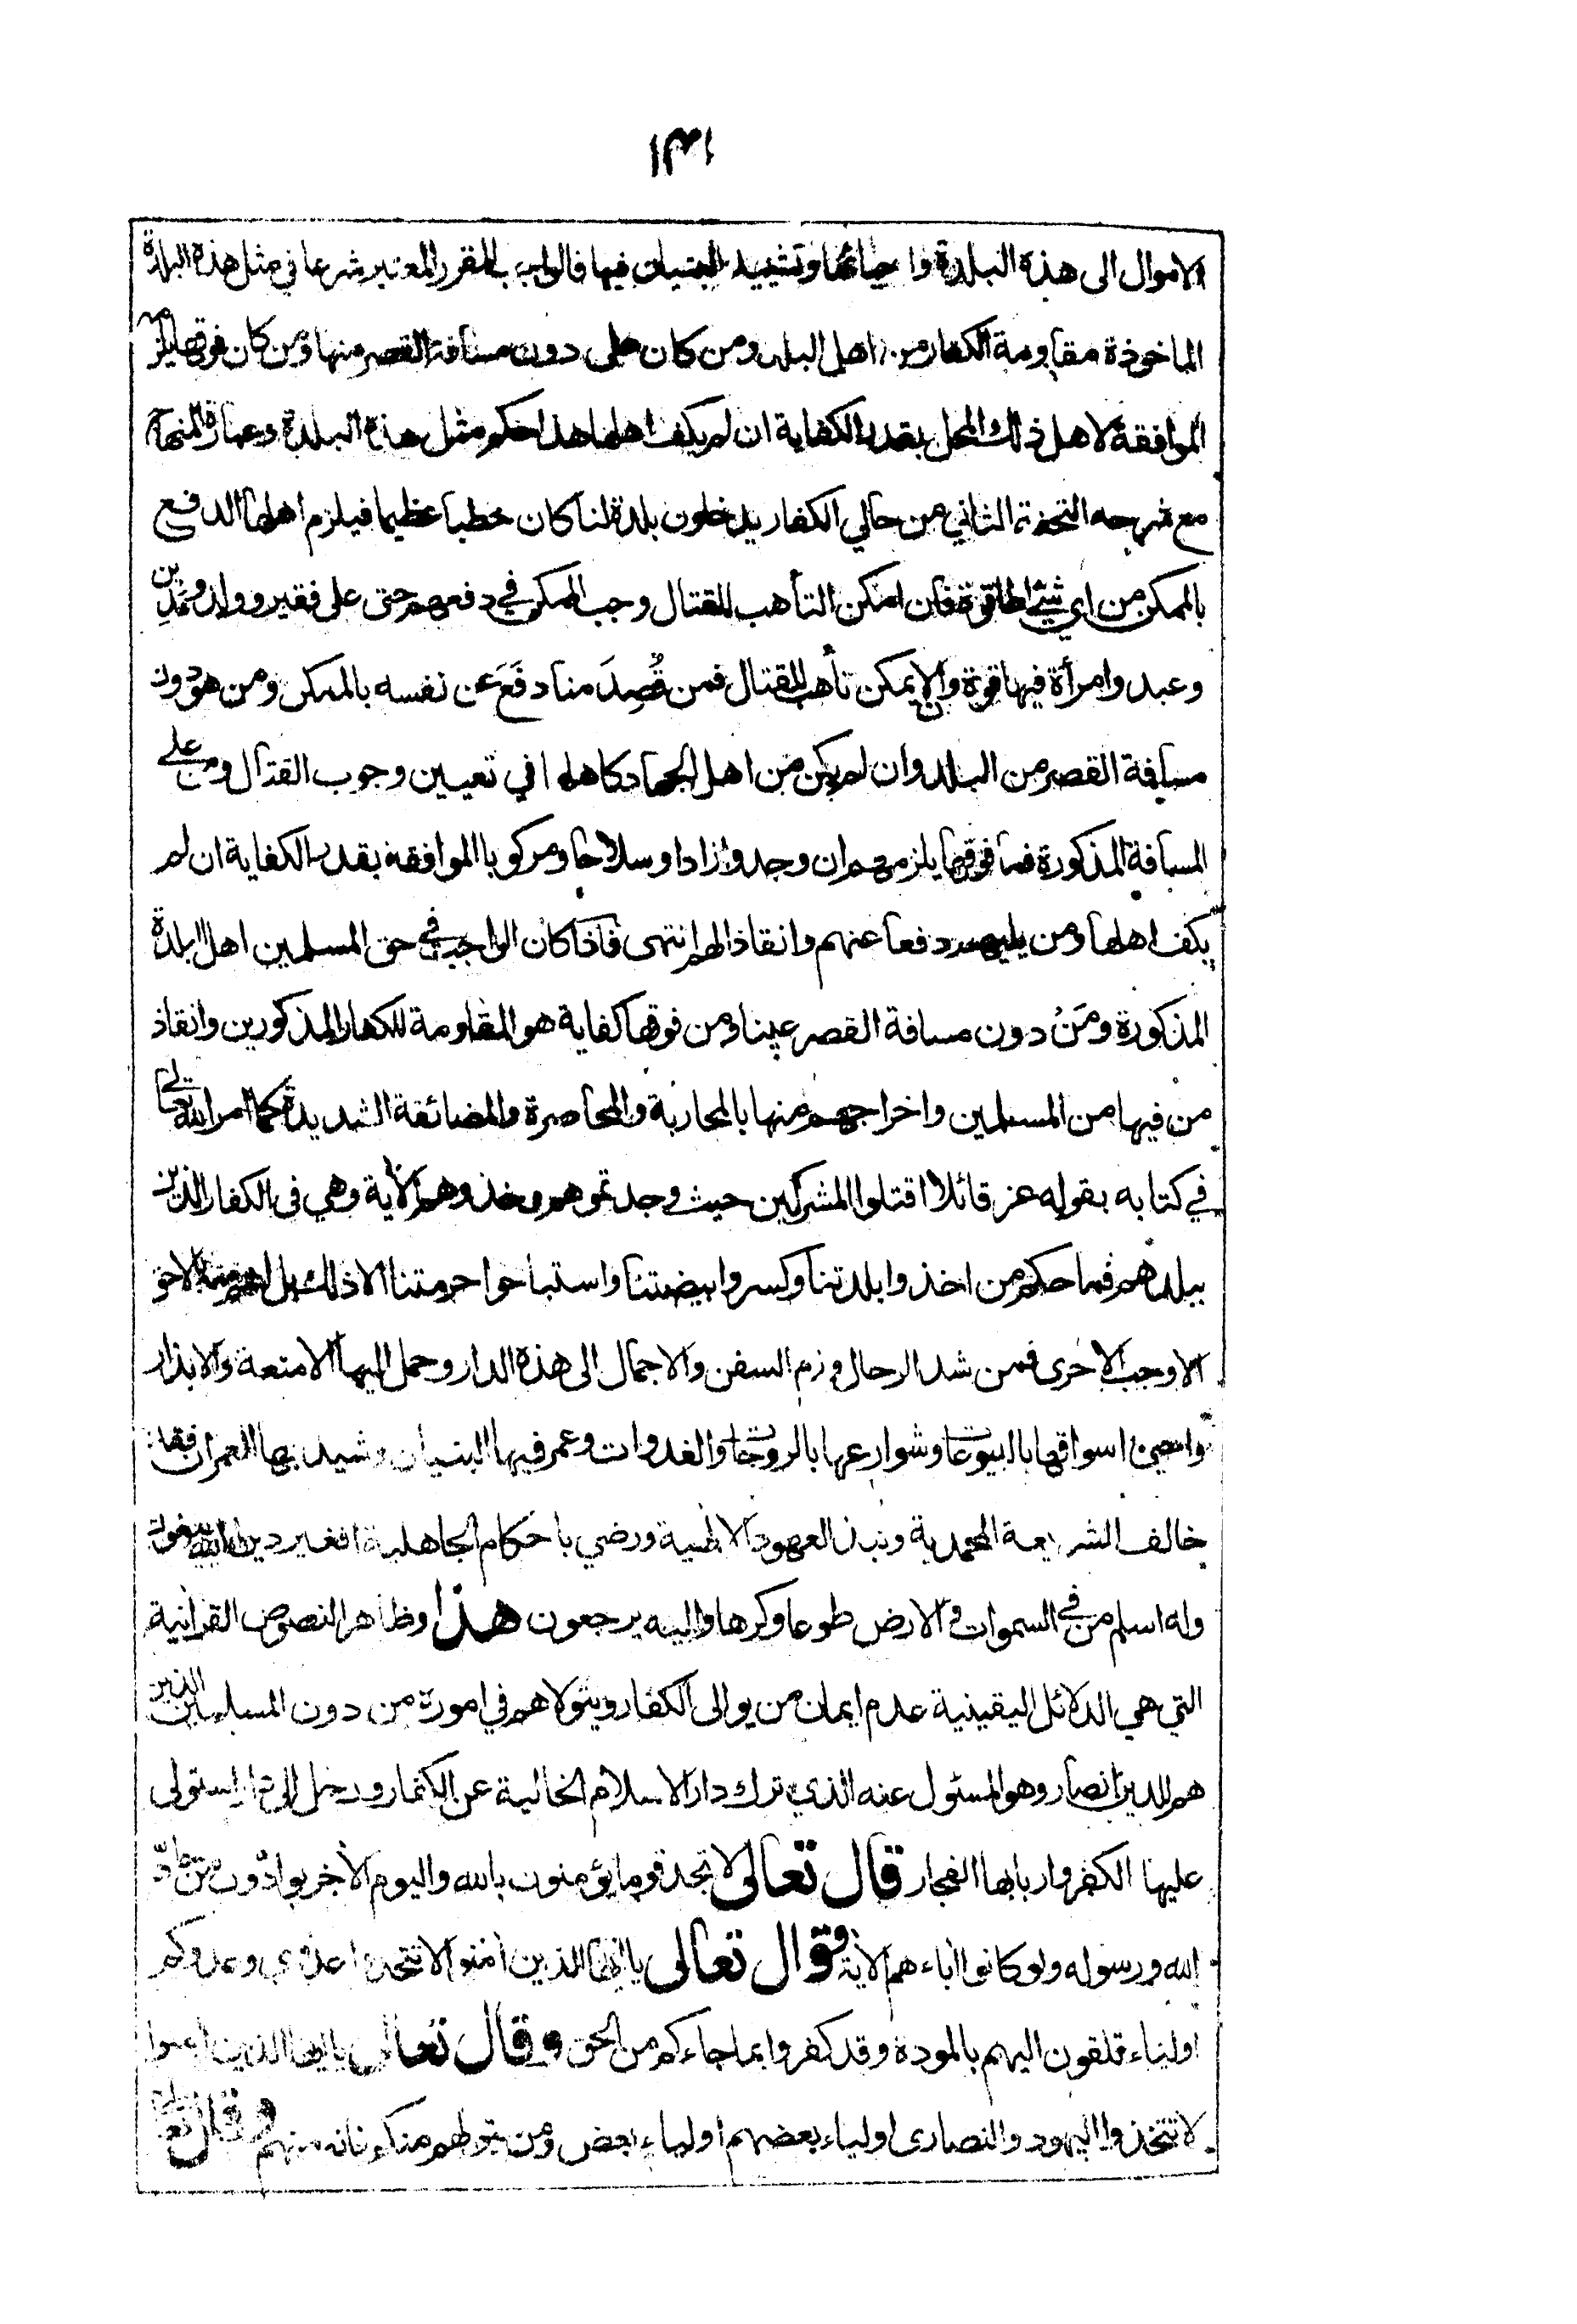 ١٣١
الاموال الى هذه البلدة واحيائها وتشييد البنيان فيها فالواجب المقرر المعتبر شرعا في مثل هذه البلدة
الماخوذة مقاومة الكفار من اهل البلد ومن كان على دون مسافة القصر منها ومن كان فوقها يلزمه
الموافقة لاهل ذلك المحل بقدر الكفاية ان لم يكف اهلها هذا حكم مثل هذه البلدة وعبارة المنهاج
مع شرحه التحفة الثاني من حالي الكفار يدخلون بلدة لنا كان خطبا عظيما فيلزم اهلها الدفع
بالممكن من اي شئ اطاقوه فان امكن التأهب للقتال وجب الممكن في دفعهم حتى على فقير وولد ومدين
وعبد وامرأة فيها قوة والا يمكن تأهب للقتال فمن قُصِدَ منا دفَعَ عن نفسه بالممكن ومن هو دون
مسافة القصر من البلد وان لم يكن من اهل الجهاد كاهلها في تعيين وجوب القتال ومن على
المسافة المذكورة فما فوقها يلزمهم ان وجدوا زادا وسلاحا ومركوبا الموافقة بقدر الكفاية ان لم
يكف اهلها ومن يليهم دفعا عنهم وانقاذا لهم انتهى فاذا كان الواجب في حق المسلمين اهل البلدة
المذكورة ومَنْ دون مسافة القصر عينا ومن فوقها كفاية هو المقاومة للكفار المذكورين وانقاذ
من فيها من المسلمين واخراجهم منها بالمحاربة والمحاصرة والمضائقة الشديدة كما امر الله تعالى
في كتابه بقوله عز قائلا اقتلوا المشركين حيث وجدتموهم وخذوهم الأية وهي في الكفار الذين
ببلدهم فما حكم من اخذوا بلدتنا وكسروا بيضتنا واستباحوا حرمتنا الا ذلك بل
الاوجب الاحرى فمن شد الرحال وزم السفن والاجمال الى هذه الدار وحمل اليها الامتعة والابذار
واحيى اسواقها بالبيوعات وشوارعها بالروحات والغدوات وعمر فيها البنيان وشيد بها العمران فقد
خالف الشريعة المحمدية ونبذ العهود الالهية ورضي باحكام الجاهلية افغير دين الله يبغون
وله اسلم من في السموات والارض طوعا وكرها واليه يرجعون هذا وظاهر النصوص القرانية
التي هي الدلائل اليقينية عدم ايمان من يوالى الكفار ويتولاهم في امورة من دون المسلمين الذين
هم للدين انصار وهو المسئول عنه الذي ترك دار الاسلام الخالية عن الكفار ورحل الى دار استولى
عليها الكفر واربابها الفجار قال تعالى لا تجد قوما يؤمنون بالله واليوم الأخر يوادّون من حادّ
الله ورسوله ولو كانوا أباءهم الأية وقال تعالى يا ايها الذين أمنوا لا تتخذوا عدوي وعدوكم
اولياء تلقون اليهم بالمودة وقد كفروا بما جاءكم من الحق وقال تعالى يا ايها الذين أمنوا
لا تتخذوا اليهود والنصارى اولياء بعضهم اولياء بعض ومن يتولهم منكم فانه منهم وقال تعالى